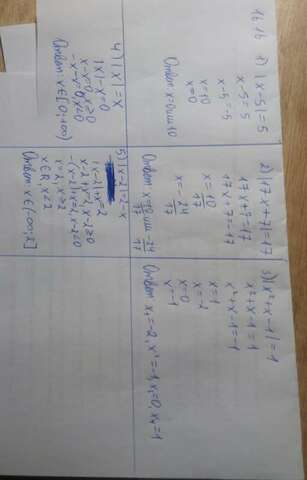 1616
1) |x-5|=5
x-5=5
x-5=-5
x=10
x=0
Ответ x=0 или 10
2) |17x+7|=17
17x+7=17
17x+7=-17
x=10/17
x=-24/17
Ответ x=10/17 или -24/17
3) |x²+x-1|=1
x²+x-1=1
x²+x-1=-1
x=1
x=-2
x=0
x=-1
Ответ x₁=-2, x=-1, x₃=0, x₄=1
4) |x|=x
|x|-x=0
x-x=0, x≥0
-x-x=0, x<0
Ответ x∈[0;+∞)
5) |x-2|=2-x
|x-2|+x=2
x-2+x=2, x-2≥0
-(x-2)+x=2, x-2<0
x=2, x≥2
x∈R, x<2
Ответ x∈(-∞;2]